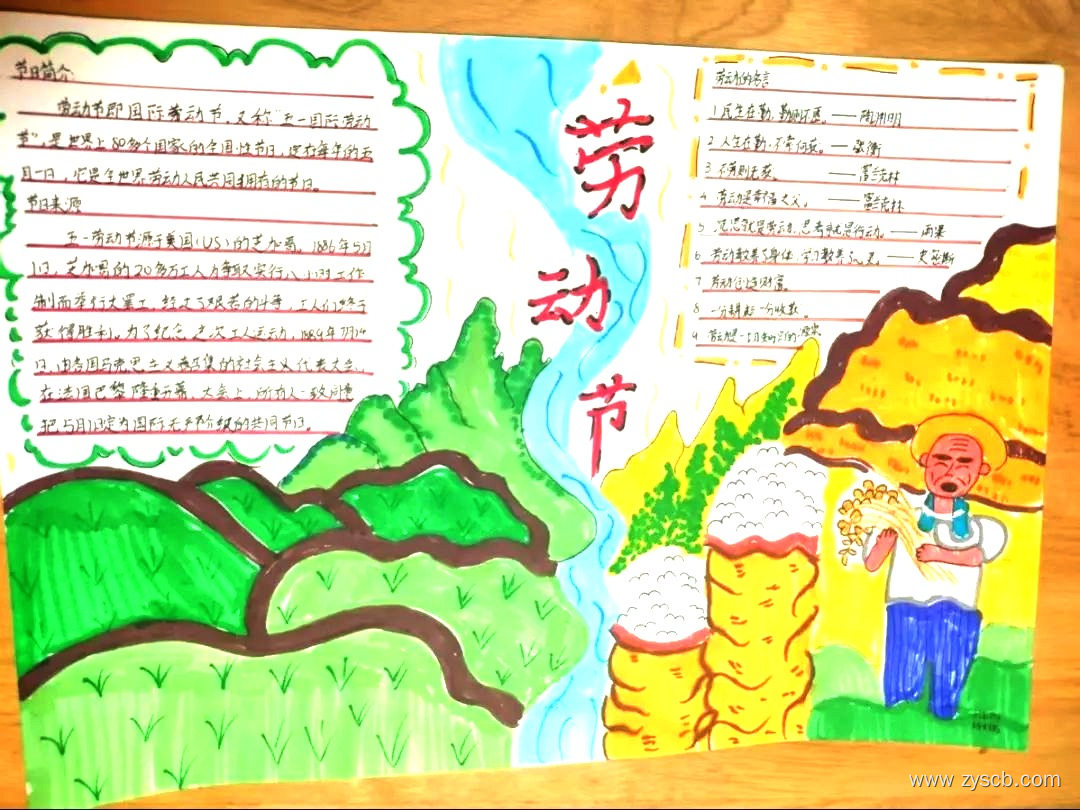 节日简介
劳动节即国际劳动节，又称"五一国际劳动
节"，是世界上80多个国家的全国性节日，定在每年的五
月一日，它是全世界劳动人民共同拥有的节日。
节日来源
五一劳动节源于美国(US)的芝加哥。1886年5月
1日，芝加哥的20多万工人为争取实行八小时工作
制而举行大罢工，经过了艰苦的斗争，工人们终于
获得胜利。为了纪念这次工人运动，1889年7月14
日，由各国马克思主义者召集的社会主义代表大会，
在法国巴黎隆重开幕，大会上，所有人一致同意
把5月1日定为国际无产阶级的共同节日。
劳
动
节
劳动的名言
1 民生在勤，勤则不匮。——陶渊明
2 人生在勤，不索何获。——张衡
3 不劳则无获。——富兰克林
4 劳动是幸福之父。——富兰克林
5 沉思就是劳动，思考就是行动。——雨果
6 劳动教养了身体，学习教养了心灵。——史密斯
7 劳动创造财富。
8 一分耕耘一分收获。
9 劳动是一切知识的源泉
www.zyscb.com